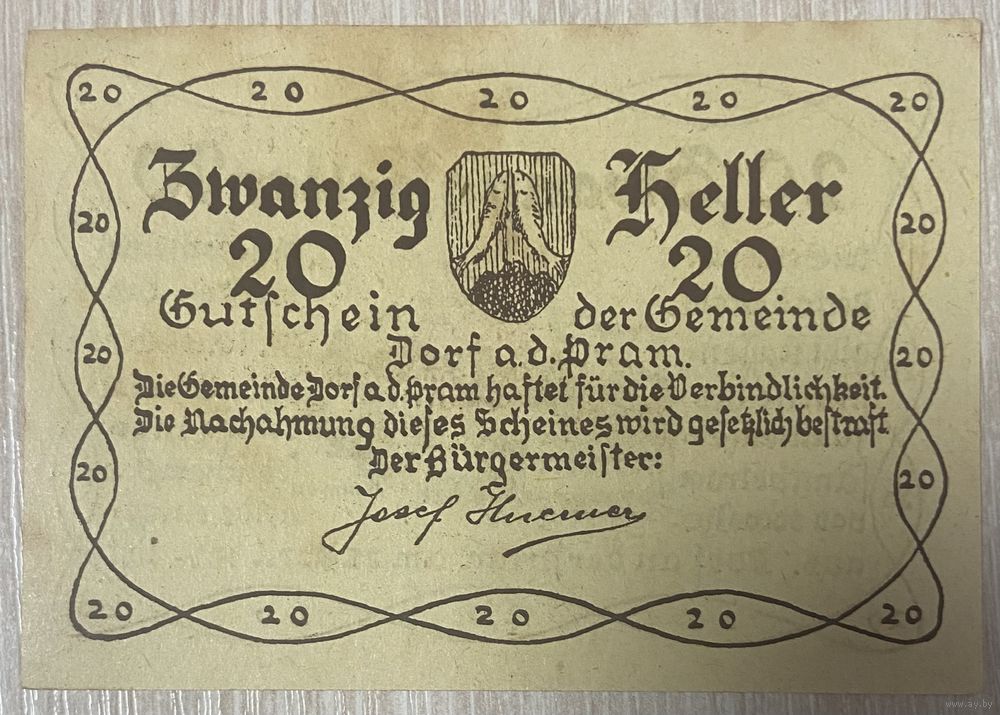 20 20 20 20 20
Zwanzig Heller
20 20
20 20
Gutschein der Gemeinde
Dorf a.d. Pram.
20 20
Die Gemeinde Dorf a.d. Pram haftet für die Verbindlichkeit.
Die Nachahmung dieses Scheines wird gesetzlich bestraft.
Der Bürgermeister:
20 20
Josef Huemer
20 20 20 20 20
www.ay.by